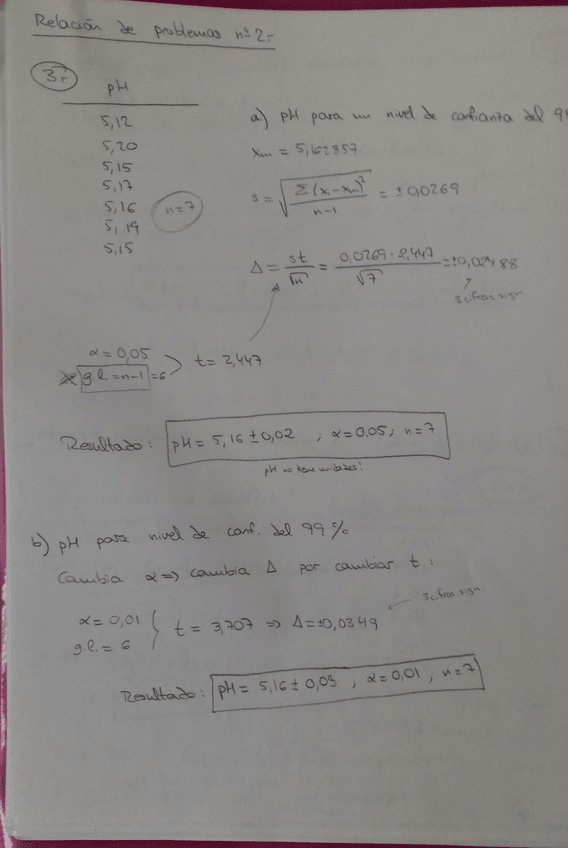 Relación de problemas nº 2.-
3.-
pH
5,12
5,20
5,15
5,17
5,16
5,19
5,15
n=7
a) pH para un nivel de confianza del 9
xm = 5,162857
s = √(Σ(xi-xm)²/(n-1)) = ±0,0269
Δ = st/√n = 0,0269·2,447/√7 = ±0,02488
3 cifras sign.
α = 0,05
g.l. = n-1 = 6
t = 2,447
Resultado: pH = 5,16 ± 0,02 ; α = 0,05 ; n = 7
pH no tiene unidades!
b) pH para nivel de conf. del 99 %
Cambia α => cambia Δ por cambiar t :
3 cifras sign.
α = 0,01
g.l. = 6
t = 3,707 => Δ = ±0,0349
Resultado: pH = 5,16 ± 0,03 ; α = 0,01 ; n = 7